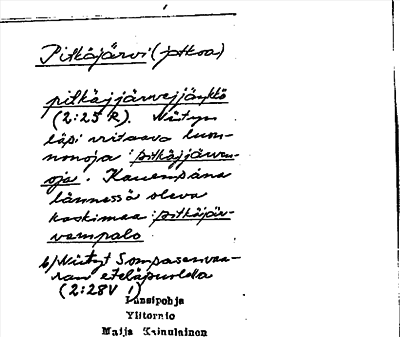 Pitkäjärvi (jatkoa)
pitkäjjärvejjäŋkkö
(2:25 R). Niityn
läpi virtaava luon-
nonoja : pitkäjjärven-
oja. Kauempana
lännessä oleva
kaskimaa : pitkäjär-
vempalo
b) Niityt Sompasenvaa-
ran eteläpuolella
(2:28 V 1)
Länsipohja
Ylitornio
Maija Kainulainen